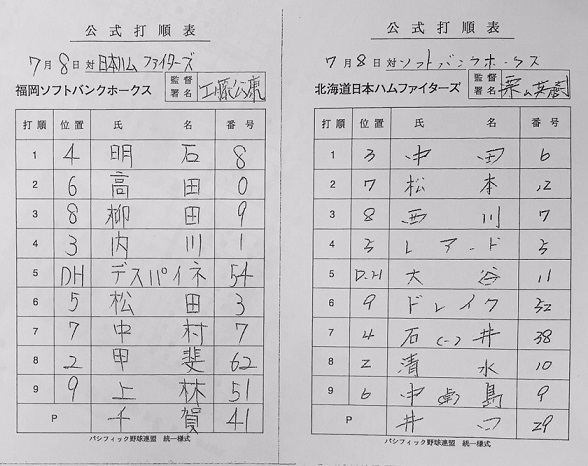 公式打順表
7月8日対日本ハムファイターズ
福岡ソフトバンクホークス 監督署名 工藤公康
打順 位置 氏名 番号
1 4 明石 8
2 6 高田 0
3 8 柳田 9
4 3 内川 1
5 DH デスパイネ 54
6 5 松田 3
7 7 中村 7
8 2 甲斐 62
9 9 上林 51
P 千賀 41
パシフィック野球連盟 統一様式
公式打順表
7月8日対ソフトバンクホークス
北海道日本ハムファイターズ 監督署名 栗山英樹
打順 位置 氏名 番号
1 3 中田 6
2 7 松本 12
3 8 西川 7
4 5 レアード 5
5 D.H 大谷 11
6 9 ドレイク 32
7 4 石(一)井 38
8 2 清水 10
9 6 中(卓)島 9
P 井口 29
パシフィック野球連盟 統一様式